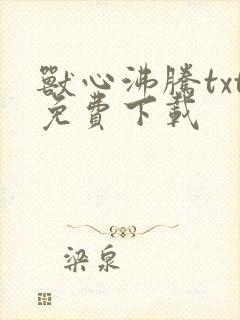 獸心沸騰txt
免費下載
梁泉